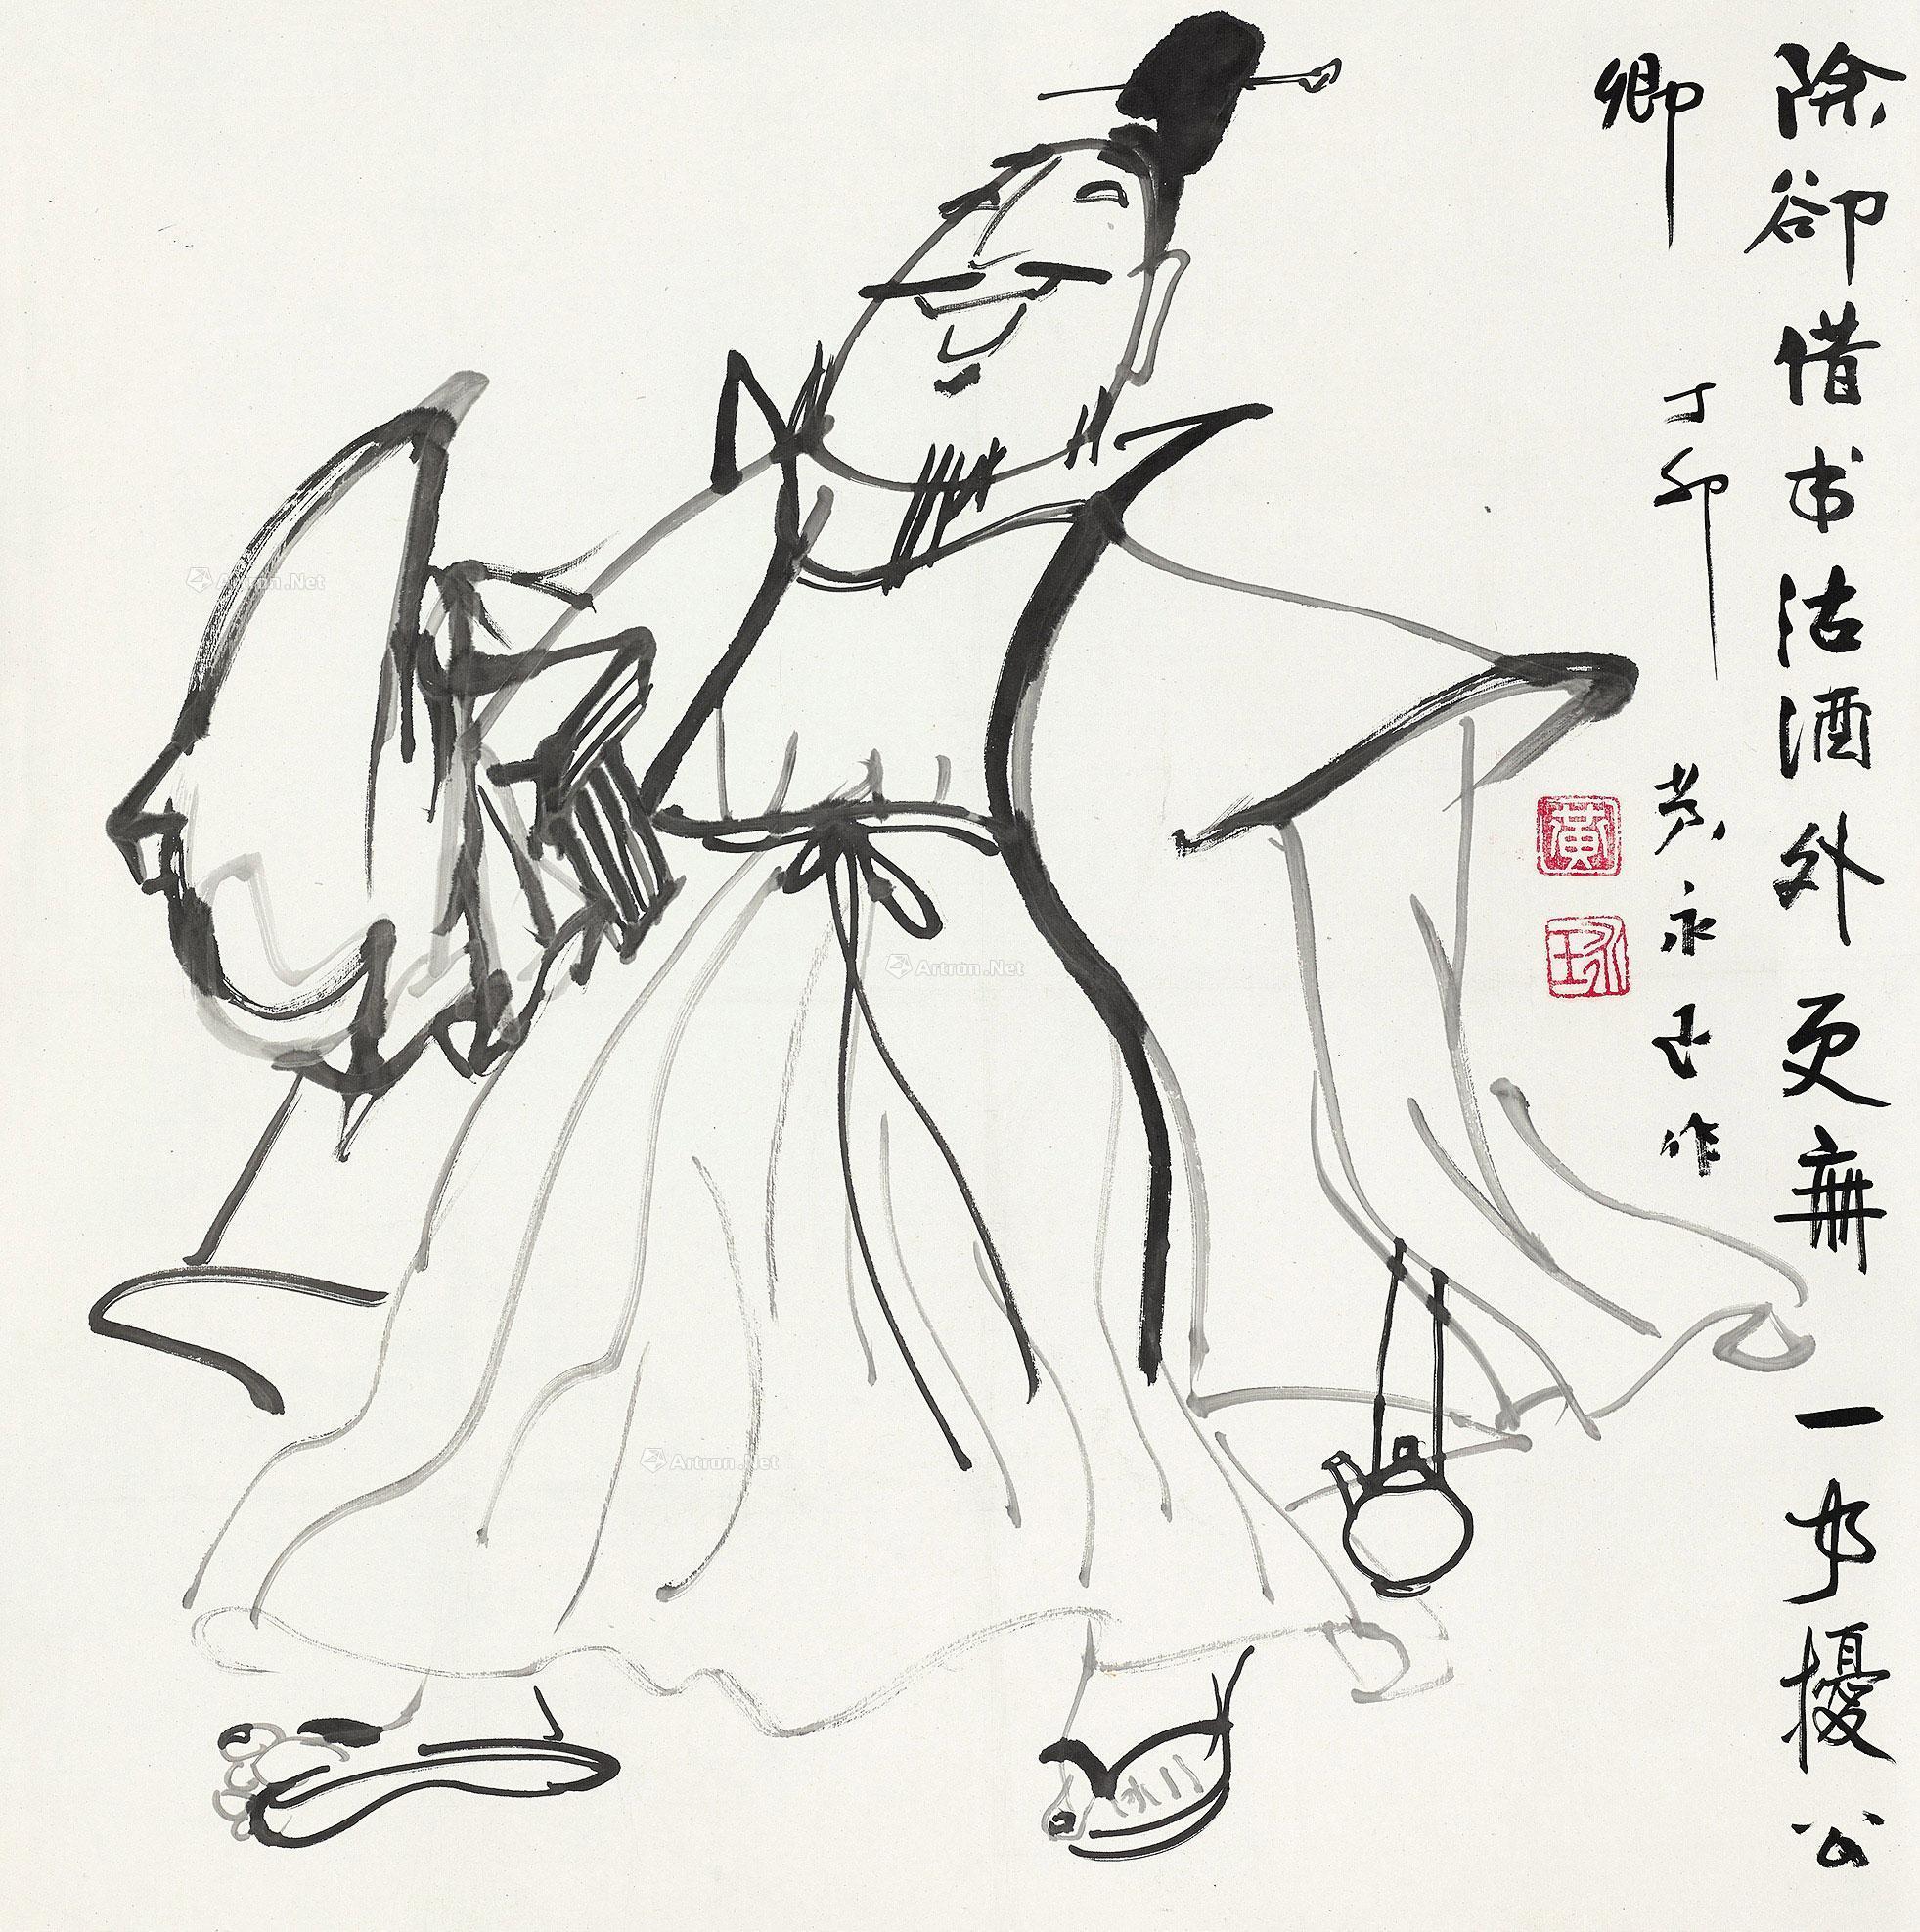 除卻借书沽酒外更無一事擾公
卿
丁卯 黄永玉作
黃
永玉
Artron.Net
Artron.Net
Artron.Net